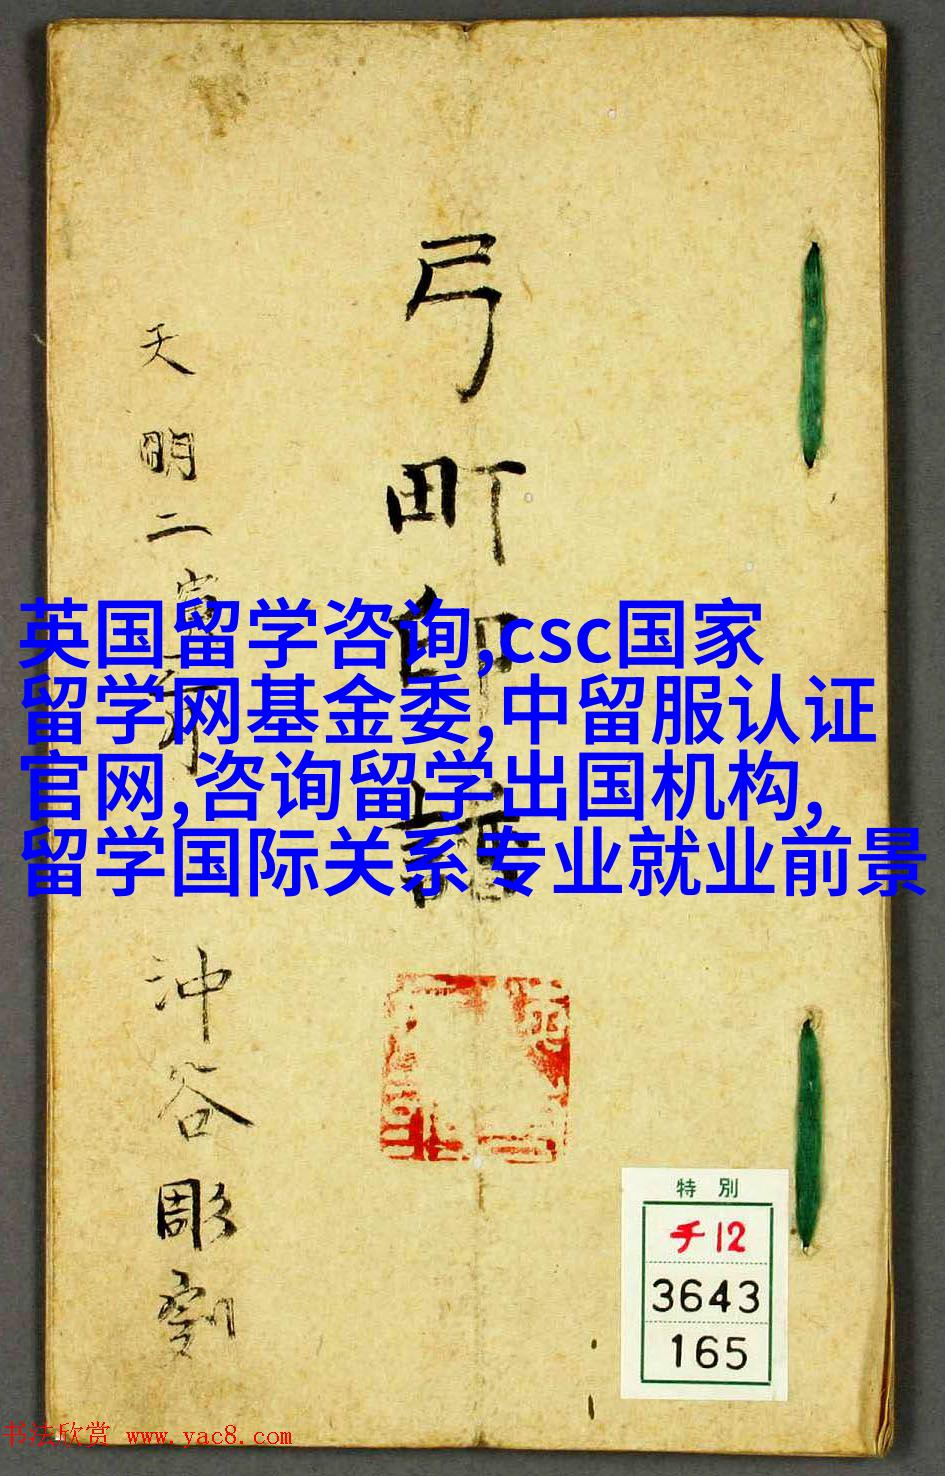 弓町印譜
天明二寅年
沖谷彫刻
英国留学咨询,csc国家
留学网基金委,中留服认证
官网,咨询留学出国机构,
留学国际关系专业就业前景
特別
チ12
3643
165
书法欣赏 www.yac8.com